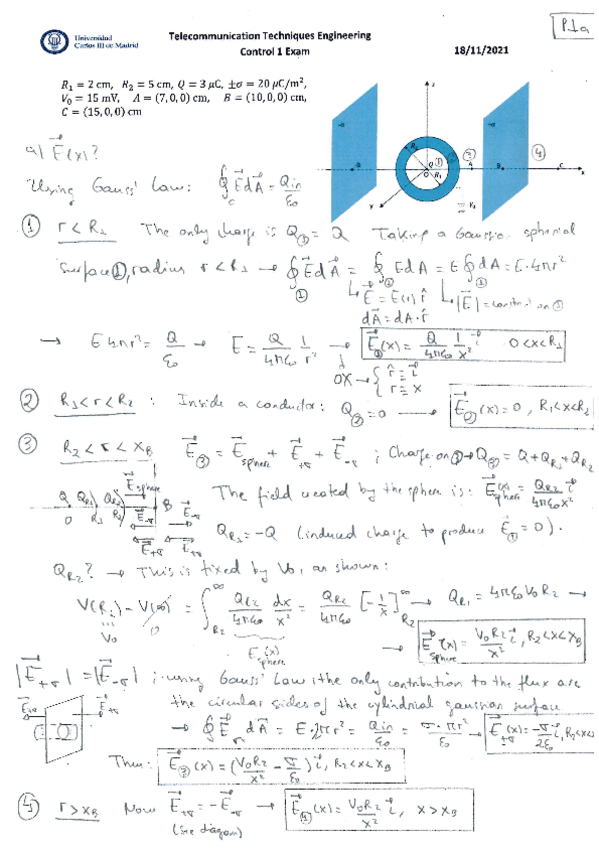 P.1a
Universidad
Carlos III de Madrid
Telecommunication Techniques Engineering
Control 1 Exam
18/11/2021
R₁ = 2 cm, R₂ = 5 cm, Q = 3 μC, ±σ = 20 μC/m²,
V₀ = 15 mV, A = (7,0,0) cm, B = (10,0,0) cm,
C = (15,0,0) cm
a) E⃗(x)?
Using Gauss' Law: ∮ E⃗dA⃗ = Qin/ε₀
① r < R₁ The only charge is Q① = Q Taking a Gaussian spherical
surface ①, radius r < R₁ → ∮ E⃗dA⃗ = ∮ EdA = E∮dA = E·4πr²
E⃗ = E(r) r̂
dA⃗ = dA·r̂
→ E4πr² = Q/ε₀ → E = Q/4πε₀ 1/r² → E⃗①(x) = Q/4πε₀ 1/x² i⃗ 0<x<R₁
OX → { r̂ = i⃗
r = x
② R₁<r<R₂ : Inside a conductor: Q② = 0 → E⃗②(x) = 0, R₁<x<R₂
③ R₂<r<x_B E⃗③ = E⃗sphere + E⃗+σ + E⃗-σ ; Charge on ③→Q③ = Q+Q_R₁+Q_R₂
The field created by the sphere is: E⃗sphere(x) = Q_R₂/4πε₀x² i⃗
Q_R₁ = -Q (induced charge to produce E⃗② = 0).
Q_R₂? → This is fixed by V₀, as shown:
V(R₂) - V(∞) = ∫ Q_R₂/4πε₀ dx/x² = Q_R₂/4πε₀ [-1/x] → Q_R₂ = 4πε₀V₀R₂ →
→ E⃗sphere(x) = V₀R₂/x² i⃗, R₂<x<x_B
|E⃗+σ| = |E⃗-σ| ; using Gauss' Law, the only contribution to the flux are
the circular sides of the cylindrical gaussian surface
→ ∮ E⃗σ dA⃗ = E·2πr² = Qin/ε₀ = σ·πr²/ε₀ → E⃗±σ(x) = -σ/2ε₀ i⃗, R₂<x<
Thus: E⃗③(x) = (V₀R₂/x² - σ/ε₀) i⃗, R₂<x<x_B
④ r>x_B Now E⃗+σ = -E⃗-σ → E⃗④(x) = V₀R₂/x² i⃗, x>x_B
(see diagram)